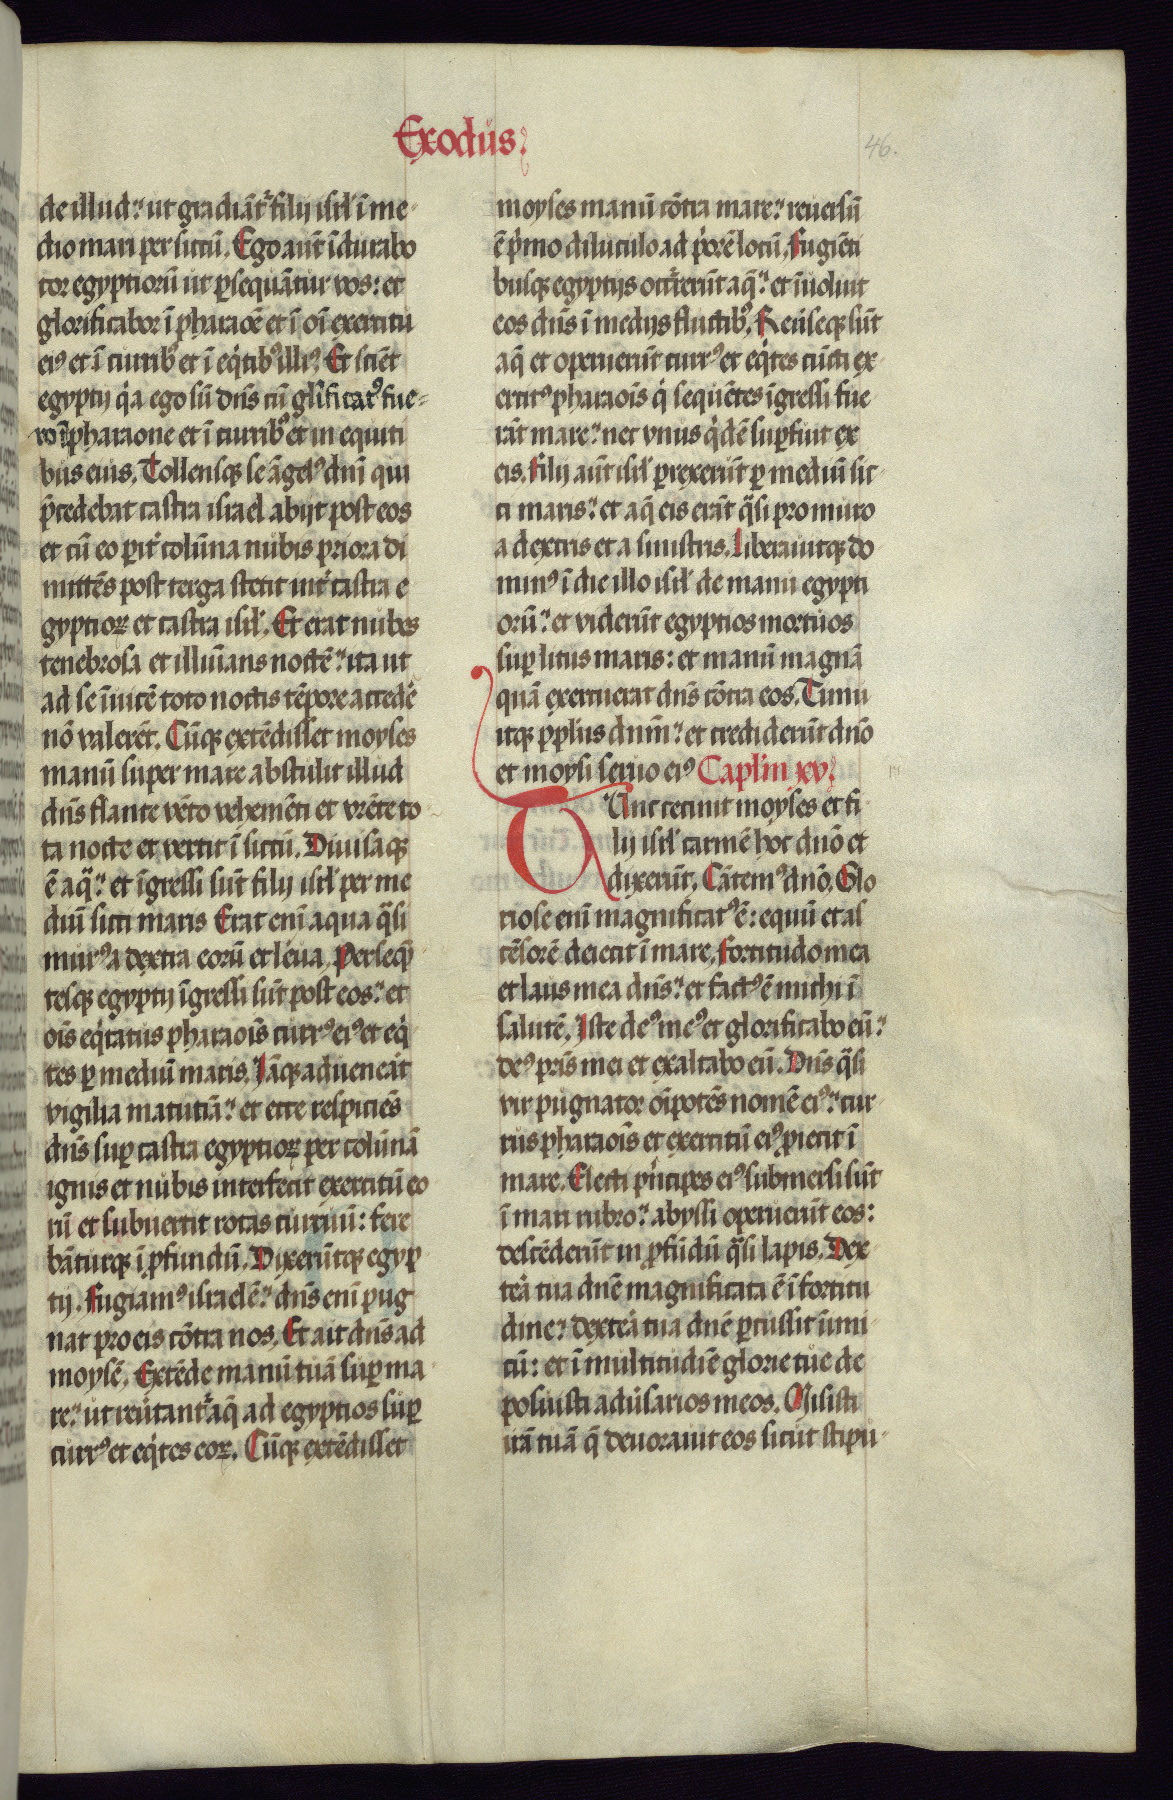 Exodus
46.
de illud: ut gradiāt᷑ filij isrl̄ ī me
dio mari per siccū. Ego aūt īdurabo
cor egyptiorū ut ꝑsequāntur vos: et
glorificabor ī pharaōe et ī oī exercitu
eiꝰ et ī curribꝰ et ī eqͥtibꝰ illiꝰ. Et sciēt
egyptij qͥa ego sū dn̄s cū glīficatꝰ fue-
ro ī pharaone et ī curribꝰ et in equiti
bus eius. Tollensqꝫ se āgelꝰ dn̄i qui
p̄cedebat castra israel abijt post eos
et cū eo ꝑit᷑ colūna nubis priora di
mittēs post terga stetit int᷑ castra e
gyptioꝝ et castra isrl̄. Et erat nubes
tenebrosa et illuīans noctē: ita ut
ad se īuicē toto noctis tēpore accedē
nō valerēt. Cūqꝫ extēdisset moyses
manū super mare abstulit illud
dn̄s flante vēto vehemēti et vrēte to
ta nocte et vertit ī siccū. Diuisaqꝫ
ē aqᷓ: et īgressi sūt filij isrl̄ per me
diū sicci maris Erat enī aqua qᷓsi
murꝰ a dextra eorū et leua. Perseqn̄
tesqꝫ egyptij īgressi sūt post eos: et
oīs eqͥtatus pharaoīs currꝰ eiꝰ et eqͥ
tes ꝑ mediū maris. Iāqꝫ aduenerāt
vigilia matutīa: et ecce respiciēs
dn̄s suꝑ castra egyptioꝝ per colūnā
ignis et nubis interfecit exercitū eo
rū et subuertit rotas curruū: fere
bāturqꝫ ī ꝓfundū. Dixerūtqꝫ egyp
tij. Fugiamꝰ israelē: dn̄s enī pug
nat pro eis cōtra nos. Et ait dn̄s ad
moysē. Extēde manū tuā suꝑ ma
re: ut reūtant᷑ aq̄ ad egyptios suꝑ
currꝰ et eqͥtes eoꝝ. Cūqꝫ extēdisset
moyses manū cōtra mare: reuersū
ē pͥmo diluculo ad pͥorē locū. Fugiēti
busqꝫ egyptijs occr̄erūt aq̄: et īuoluit
eos dn̄s ī medijs fluctibꝰ. Reūseqꝫ sūt
aq̄ et operuerūt currꝰ et eqͥtes cūcti ex
ercitꝰ pharaoīs qͥ sequētes īgressi fue
rāt mare: nec vnus qͥdē suꝑfuit ex
eis. Filij aūt isrl̄ ꝑrexerūt ꝑ mediū sic
ci maris: et aq̄ eis erāt qᷓsi pro muro
a dextris et a sinistris. Liberauitqꝫ do
minꝰ ī die illo isrl̄ de manu egypti
orū: et viderūt egyptios mortuos
suꝑ litus maris: et manū magnā
quā exercuerat dn̄s cōtra eos. Timu
itqꝫ ꝓpl̄us dn̄m: et crediderūt dn̄o
et moysi seruo eiꝰ Capl̄m xv.
Tunc cecinit moyses et fi
lij isrl̄ carmē hoc dn̄o et
dixerūt. Cātemꝰ dn̄o. Glo
riose enī magnificatꝰ ē: equū et as
cēsorē deiecit ī mare. Fortitudo mea
et laus mea dn̄s: et factꝰ ē michi ī
salutē. Iste deꝰ meꝰ et glorificabo eū:
deꝰ pr̄is mei et exaltabo eū. Dn̄s qᷓsi
vir pugnator oīpotēs nomē eiꝰ: cur
rus pharaoīs et exercitū eiꝰ ꝓiecit ī
mare. Electi pͥncipes eiꝰ submersi sūt
ī mari rubro: abyssi operuerūt eos:
descēderūt in ꝓfūdū qᷓsi lapis. Dex
teͣ tua dn̄e magnificata ē ī fortitu
dine: dexteͣ tua dn̄e ꝑcussit īimi
cū: et ī multitudīe glorie tue de
posuisti adūsarios meos. Misisti
irā tuā q̄ deuorauit eos sicut stipu